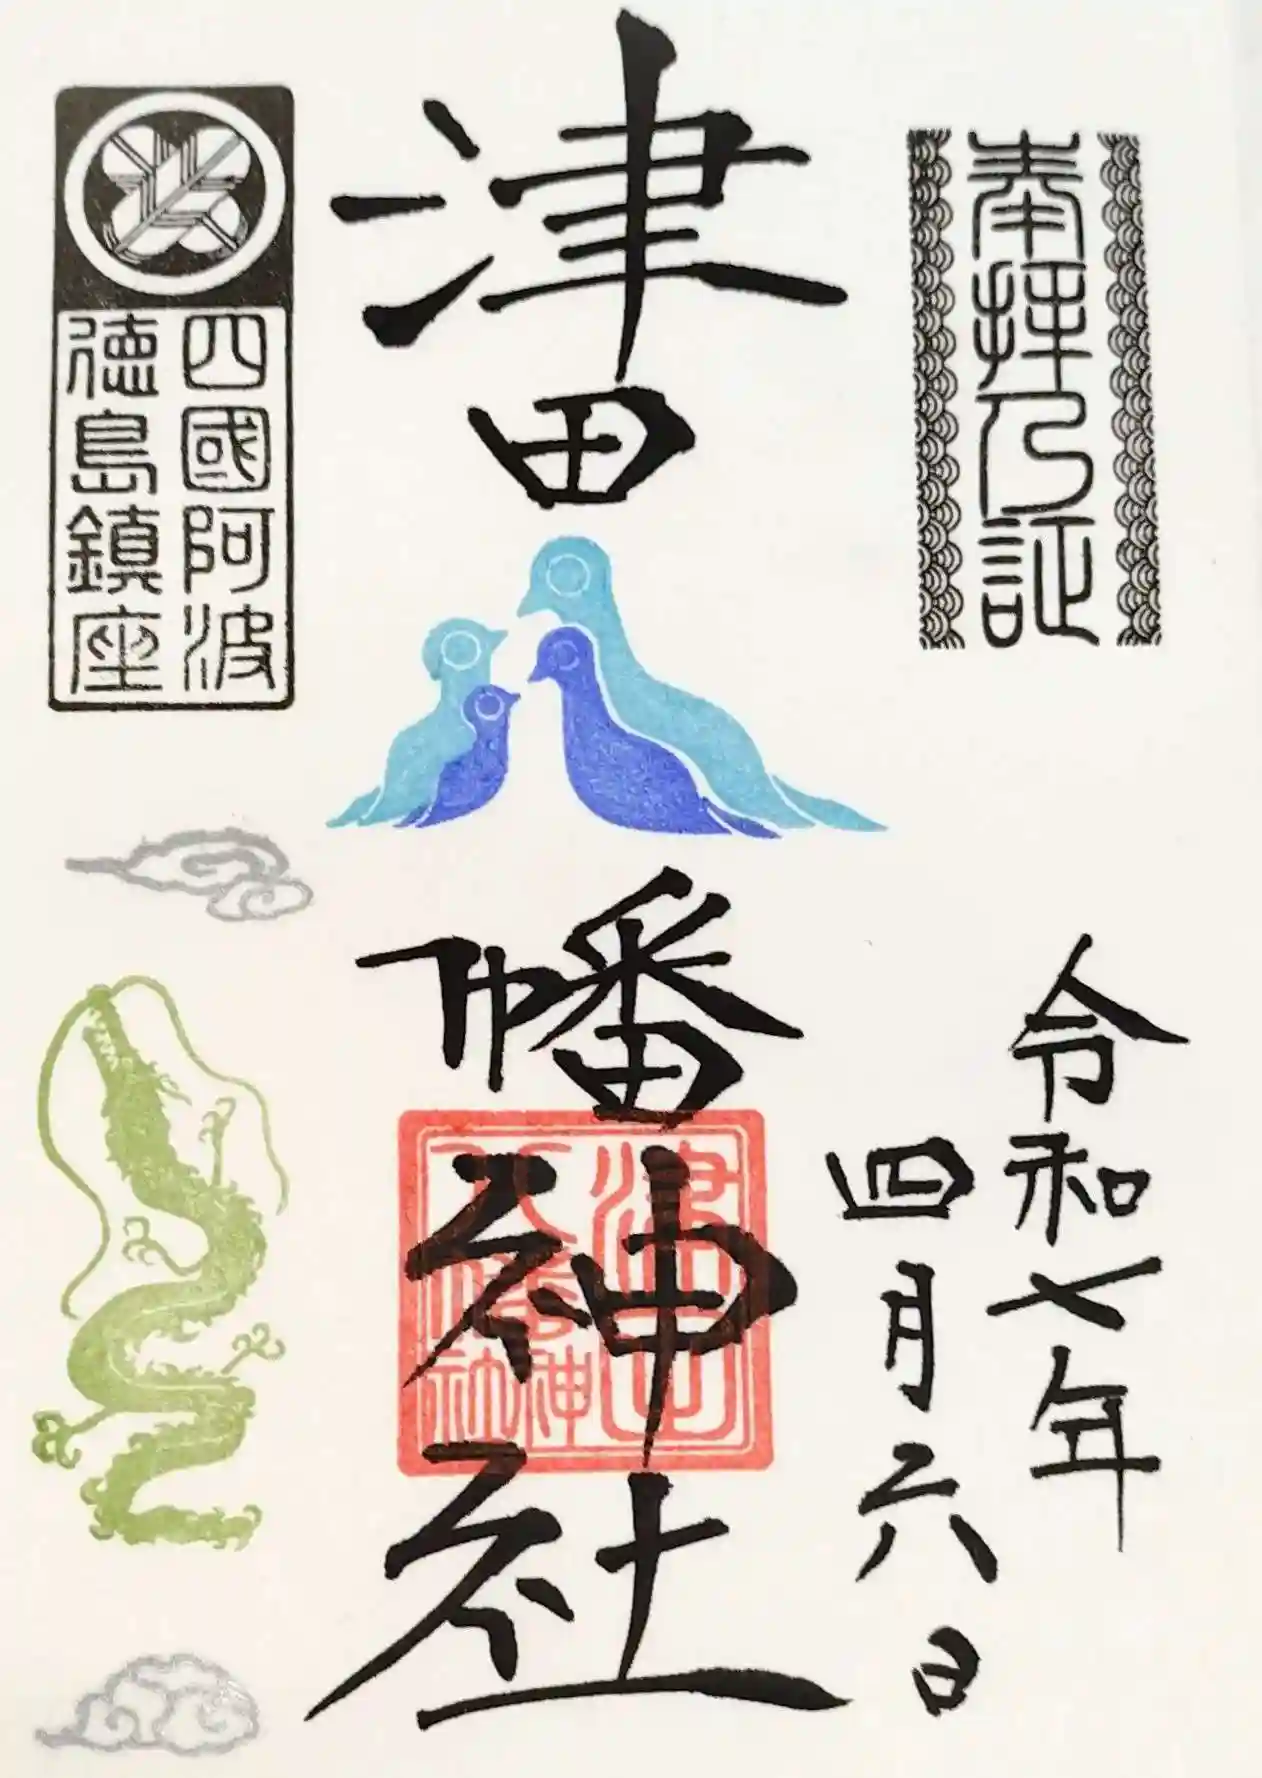 奉拝之証
令和七年
四月六日
津田八幡神社
津田
八幡
神社
四國阿波
徳島鎮座